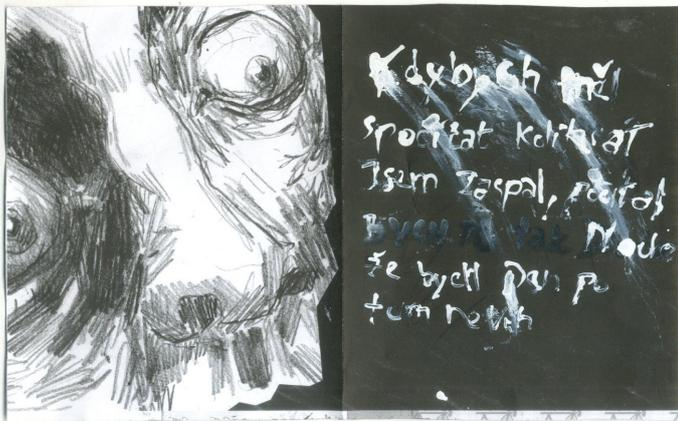 Kdybych měl
spočítat kolikrát
Jsem zaspal, počítal
Bych tak Dlouho
že bych Pak po
tom